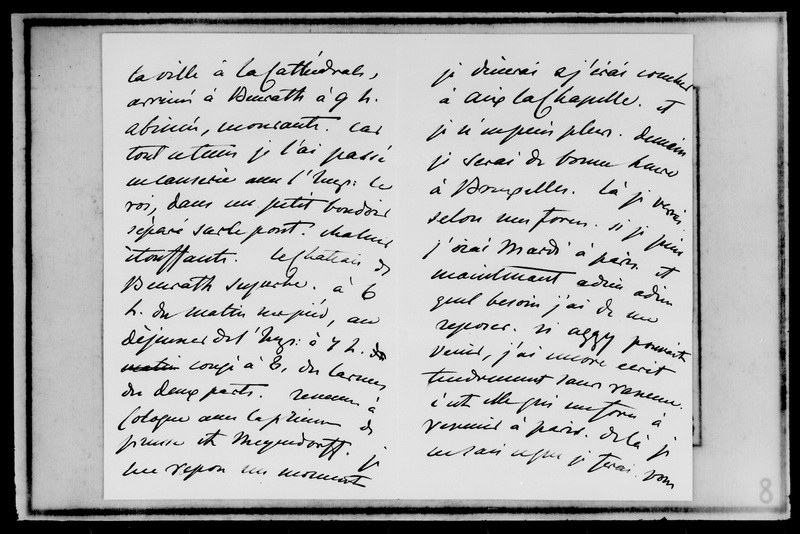 la ville à la Cathédrale,
arrivés à Benrath à 9 h.
abimés, mourants. Car
tout ce tems je l'ai passé
en causerie avec l'Imp: le
roi, dans un petit boudoir
séparé sur le pont. Chaleur
étouffante. Le Chateau de
Benrath superbe. à 6
h. du matin sur pied, au
déjeuner de l'Imp: à 7 h. du
matin congé à 8, des larmes
des deux parts. revenu à
Cologne avec la princesse de
prusse et Meyendorff. je
me repose un moment
je dinerai et j'irai coucher
à Aix la Chapelle. et
je n'en puis plus. Demain
je serai de bonne heure
à Bruxelles. Là je verrai
selon mes forces. si je puis
j'irai Mardi à paris. et
maintenant adieu adieu
quel besoin j'ai de me
reposer. si aggy pouvait
venir, j'ai encore écrit
tendrement sans rancune.
c'est elle qui me force à
revenir à paris. de là je
ne sais ce que je ferai. vous
8